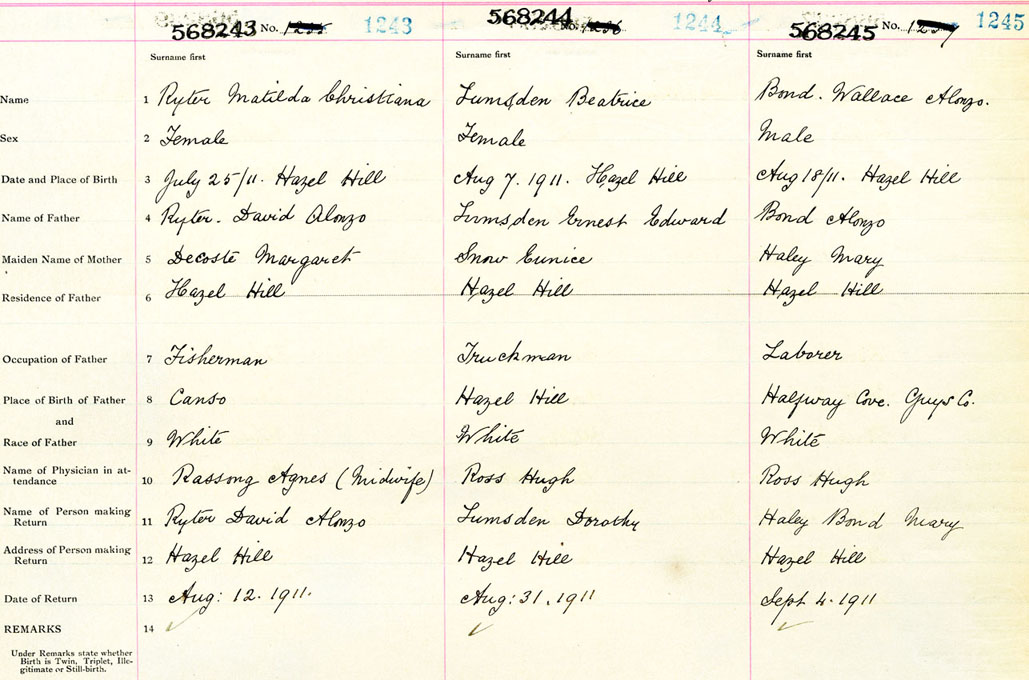 568243 No. 1243
568244 No. 1244
568245 No. 1245
Surname first Surname first Surname first
Name 1 Ryter Matilda Christiana Lumsden Beatrice Bond. Wallace Alonzo.
Sex 2 Female Female Male
Date and Place of Birth 3 July 25/11. Hazel Hill Aug 7. 1911. Hazel Hill Aug 18/11. Hazel Hill
Name of Father 4 Ryter. David Alonzo Lumsden Ernest Edward Bond Alonzo
Maiden Name of Mother 5 Decoste Margaret Snow Eunice Haley Mary
Residence of Father 6 Hazel Hill Hazel Hill Hazel Hill
Occupation of Father 7 Fisherman Truckman Laborer
Place of Birth of Father 8 Canso Hazel Hill Halfway Cove. Guys Co.
and
Race of Father 9 White White White
Name of Physician in at-
tendance 10 Rassong Agnes (Midwife) Ross Hugh Ross Hugh
Name of Person making
Return 11 Ryter David Alonzo Lumsden Dorothy Haley Bond Mary
Address of Person making
Return 12 Hazel Hill Hazel Hill Hazel Hill
Date of Return 13 Aug: 12. 1911. Aug: 31. 1911 Sept 4. 1911
REMARKS 14
Under Remarks state whether
Birth is Twin, Triplet, Ille-
gitimate or Still-birth.